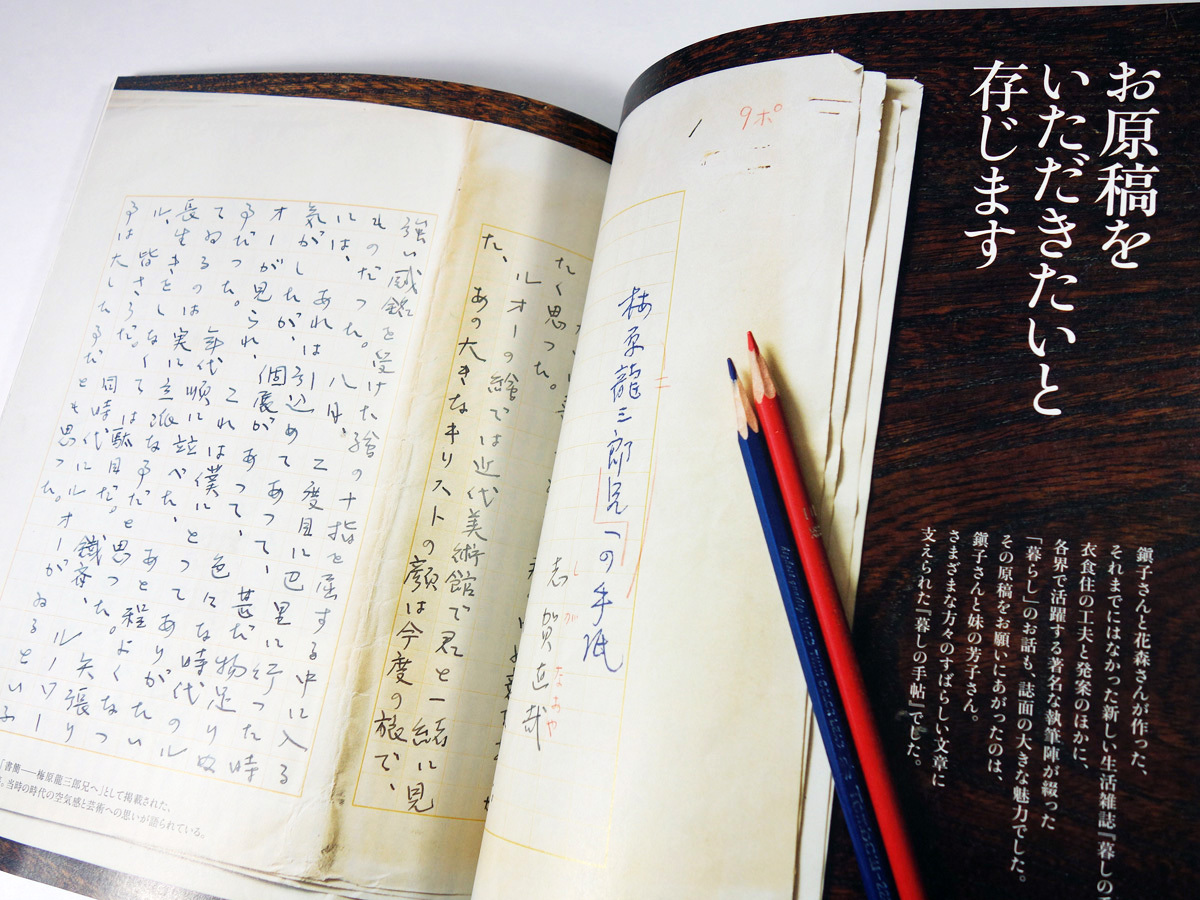 お原稿を
いただきたいと
存じます
鎭子さんと花森さんが作った、
それまでにはなかった新しい生活雑誌『暮しの
衣食住の工夫と発案のほかに、
各界で活躍する著名な執筆陣が綴った
「暮らし」のお話も、誌面の大きな魅力でした。
その原稿をお願いにあがったのは、
鎭子さんと妹の芳子さん。
さまざまな方々のすばらしい文章に
支えられた『暮しの手帖』でした。
9ポ
梅原龍三郎兄への手紙
志賀直哉
しが なおや
たく思った。
ルオーの繪では近代美術館で君と一緒に見
た、あの大きなキリストの顔は今度の旅で、
強い感銘を受けた繪の十指を屈する中に入る
ものだった。八月、二度目に巴里に行った時
には、あれは引込めてあって、甚だ物足りぬ
気がしたが、個展があって、色々な時代のル
オーが見られ、これは僕にとってありがたい
事だった。年代順に並べた、あと程よくなっ
てゐるのは実に立派な事だと思った。矢張り
長生きをしなくては駄目だ。鐵斎、ルノワー
ル、皆さうだ。同時代にルオーがゐるといふ
事は大した事だとも思った。
「書簡——梅原龍三郎兄へ」として掲載された、
当時の時代の空気感と芸術への思いが語られている。